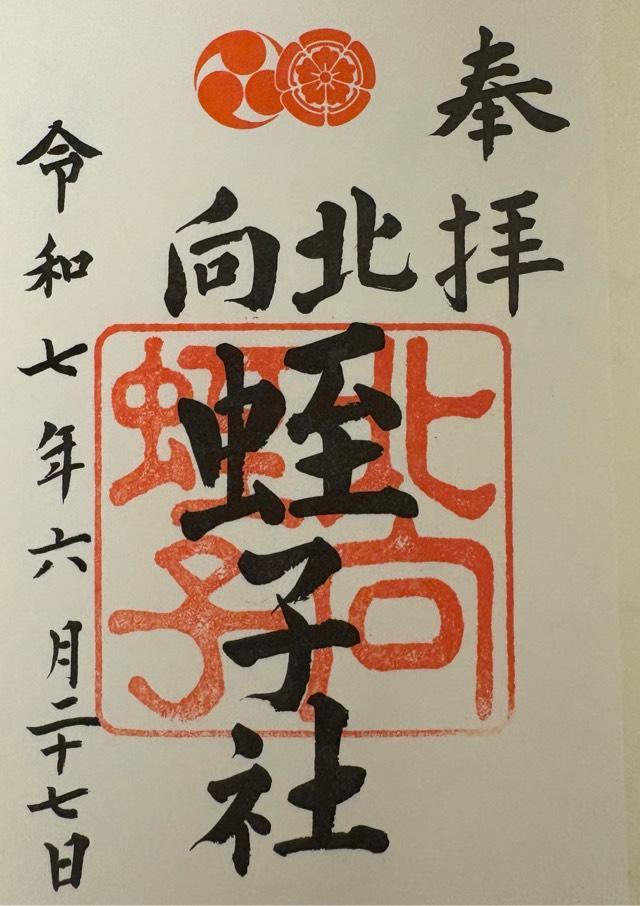 奉拝
北向
蛭子社
令和七年六月二十七日
北向
蛭子